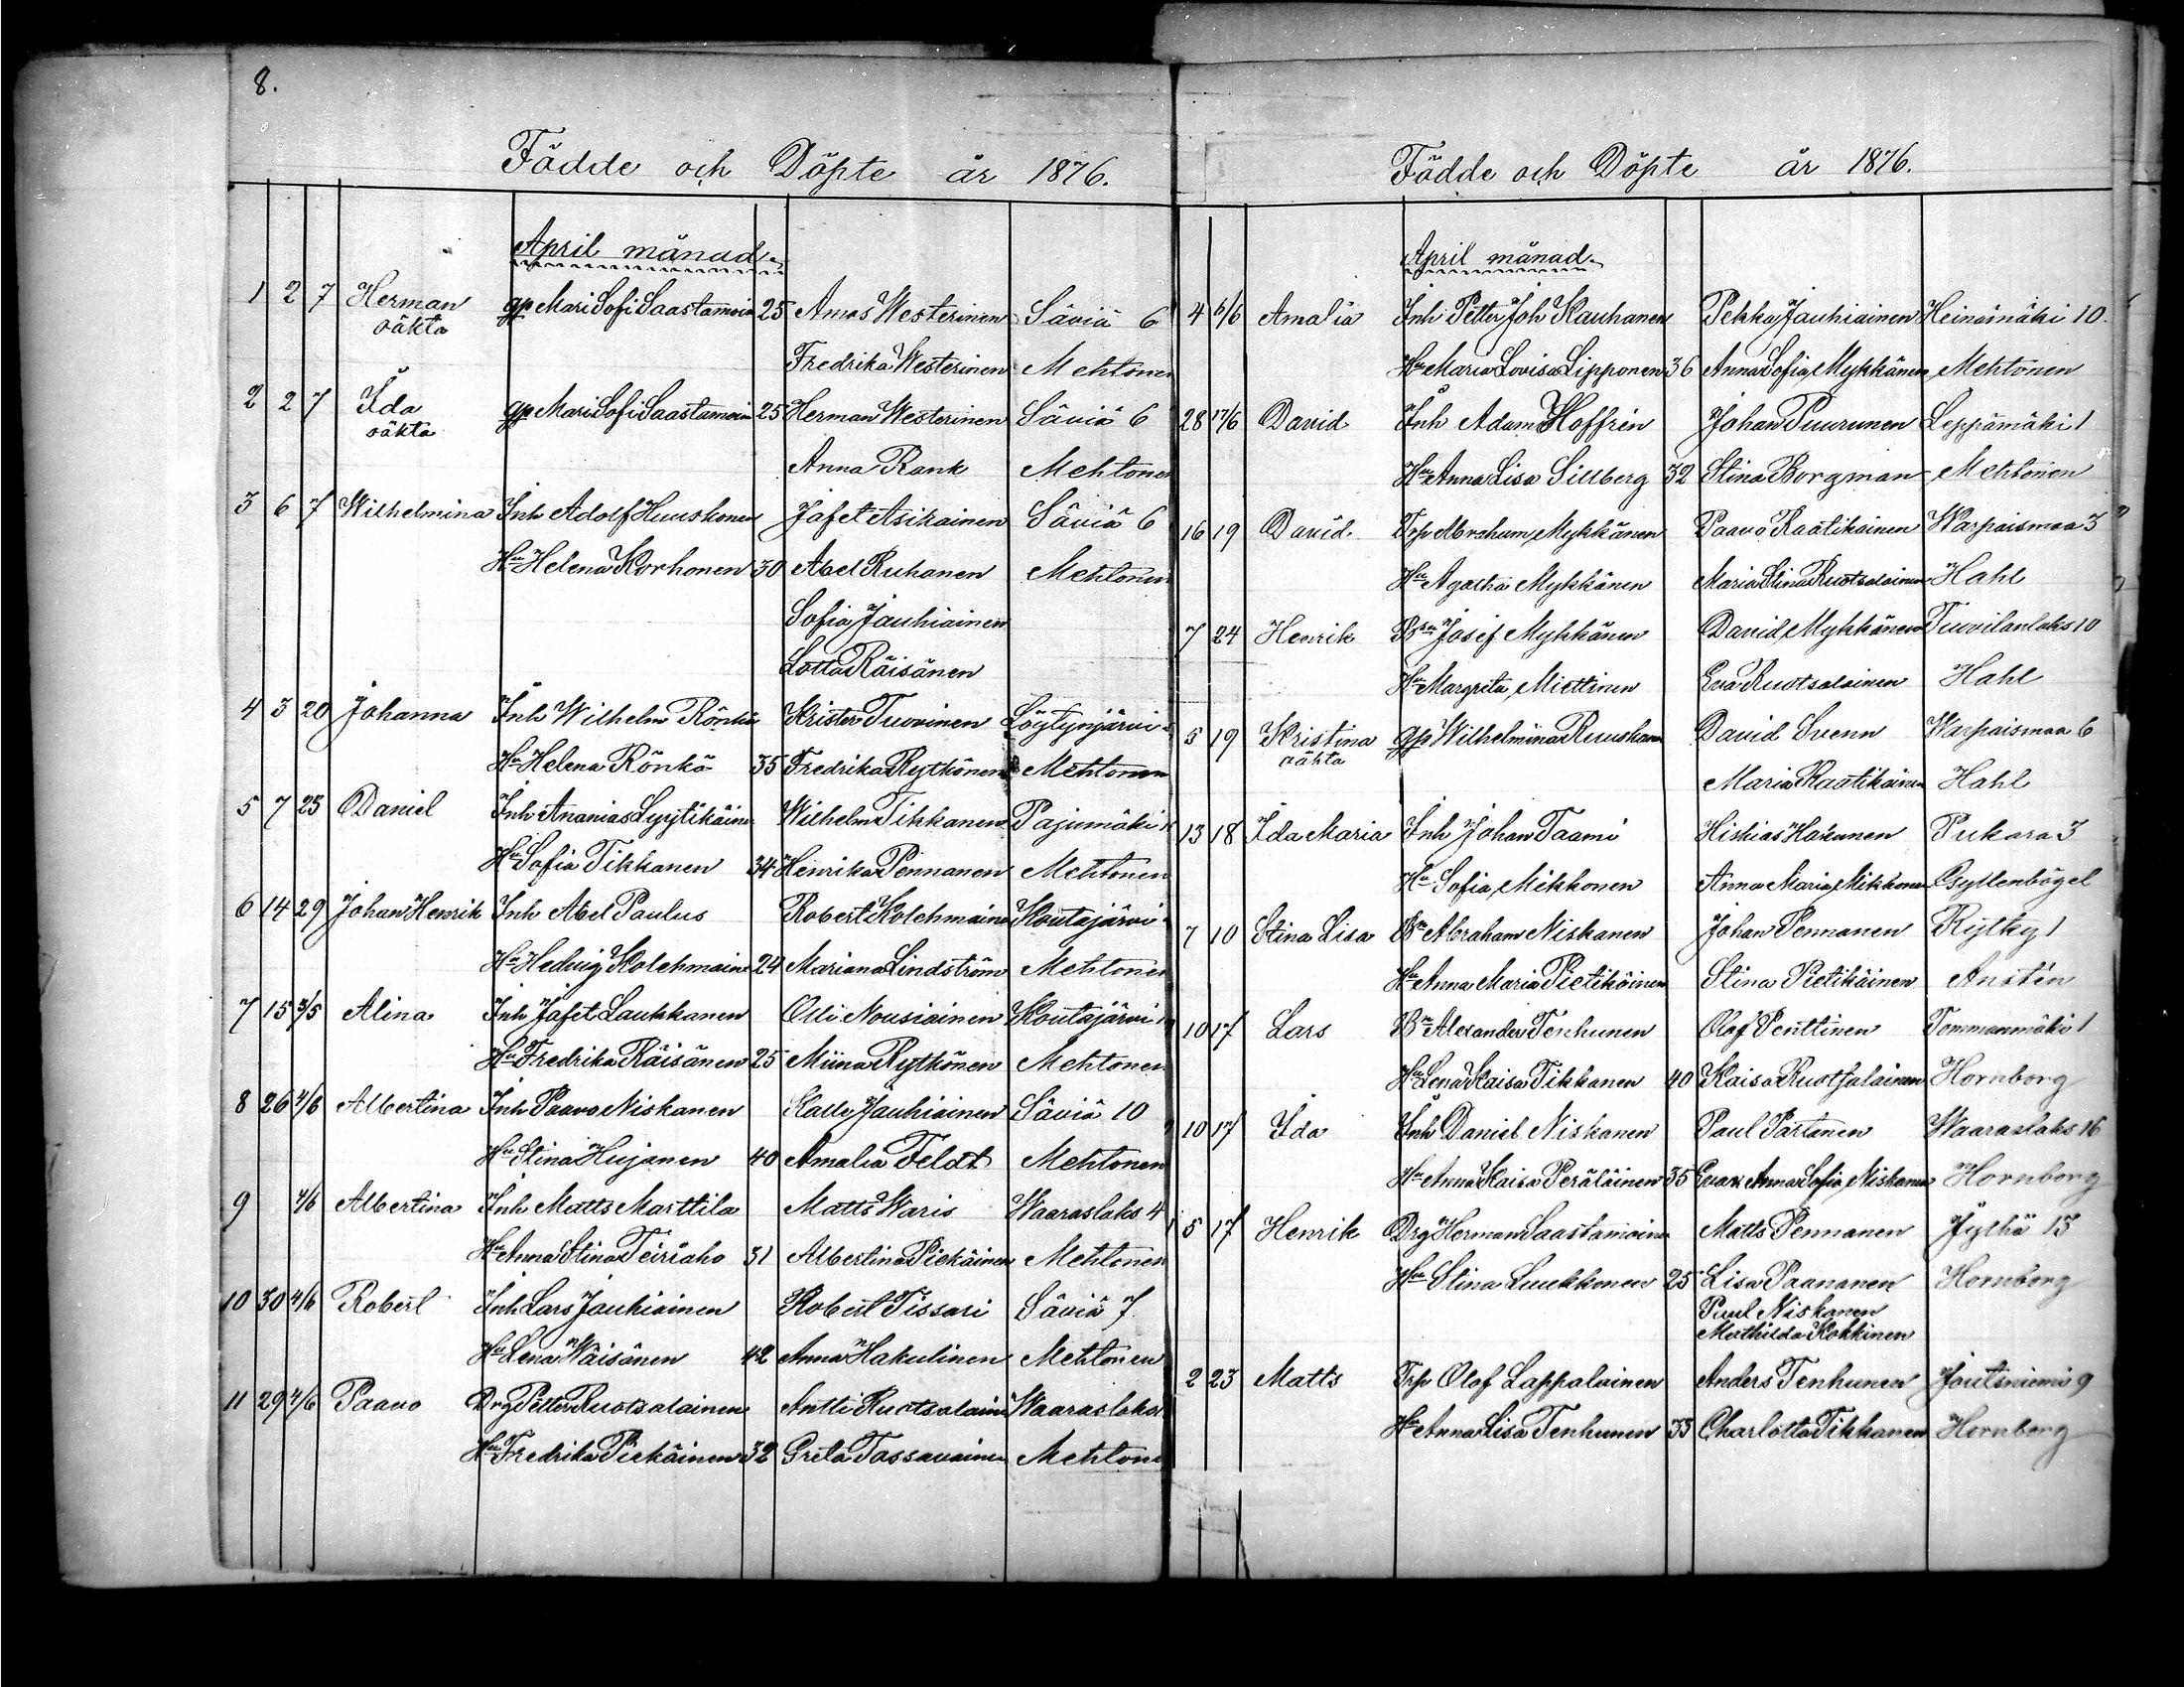 8.
Födde och Döpte år 1876.
April månad.
1 2 7 Herman gp Mari Sofi Saastamoin 25 Amos Westerinen Säviä 6
oäkta
Fredrika Westerinen Mehtonen
2 2 7 Ida gp Mari Sofi Saastamoin 25 Herman Westerinen Säviä 6
oäkta
Anna Rank Mehtonen
3 6 7 Wilhelmina Inh Adolf Huuskonen Jafet Asikainen Säviä 6
Hu Helena Korhonen 30 Abel Ruhanen Mehtonen
Sofia Jauhiainen
Lotta Räisänen
4 3 20 Johanna Inh Wilhelm Rönkä Krister Tuovinen Löytynjärvi
Hu Helena Rönkä 35 Fredrika Rytkönen Mehtonen
5 7 23 Daniel Inh Ananias Lyytikäine Wilhelm Tikkanen Pajumäki
Hu Sofia Tikkanen 34 Henrika Pennanen Mehtonen
6 14 29 Johan Henrik Inh Abel Paulus Robert Kolehmaine Koutajärvi
Hu Hedvig Kolehmaine 24 Mariana Lindström Mehtonen
7 15 3/5 Alina Inh Jafet Laukkanen Olli Nousiainen Koutajärvi
Hu Fredrika Räisänen 25 Miina Rytkönen Mehtonen
8 26 4/6 Albertina Inh Paavo Niskanen Kalle Jauhiainen Säviä 10
Hu Stina Hujanen 40 Amalia Feldt Mehtonen
9 4/6 Albertina Inh Matts Marttila Matts Waris Waaraslaks 4
Hu Anna Stina Teiriaho 31 Albertina Piekäinen Mehtonen
10 30 4/6 Robert Inh Lars Jauhiainen Robert Tissari Säviä 7
Hu Lena Wäisänen 42 Anna Hakulinen Mehtonen
11 29 4/6 Paavo Drg Petter Ruotsalainen Antti Ruotsalaine Waaraslaks
Hu Fredrika Piekäinen 32 Greta Tossavainen Mehtone
Födde och Döpte år 1876.
April månad.
4 6/6 Amalia Inh Petter Joh Kauhanen Pekka Jauhiainen Heinämäki 10.
Hu Maria Lovisa Lipponen 36 Anna Sofia Mykkänen Mehtonen
28 17/6 David Inh Adam Hoffrén Johan Puurunen Leppämäki 1
Hu Anna Lisa Sillberg 32 Stina Borgman Mehtonen
16 19 David Trp Abraham Mykkänen Paavo Raatikainen Warpaismaa 3
Hu Agatha Mykkänen Maria Stina Ruotsalainen Hahl
7 24 Henrik Bsn Josef Mykkänen David Mykkänen Tuovilanlaks 10
Hu Margreta Miettinen Eva Ruotsalainen Hahl
5 19 Kristina gp Wilhelmina Ruuskan David Svenn Warpaismaa 6
oäkta
Maria Raatikainen Hahl
13 18 Ida Maria Inh Johan Taami Hiskias Hakunen Pukara 3
Hu Sofia Mikkonen Anna Maria Mikkonen Gyllenbögel
7 10 Stina Lisa Bn Abraham Niskanen Johan Pennanen Rytky 1
Hu Anna Maria Pietikäinen Stina Pietikäinen Anstén
10 17 Lars Bn Alexander Tenhunen Olof Penttinen Tommanmäki 1
Hu Lena Kaisa Tikkanen 40 Kaisa Ruotsalainen Hornborg
10 17 Ida Inh Daniel Niskanen Paul Partanen Waaraslaks 16
Hu Anna Kaisa Peräläinen 35 Anna Sofia Niskanen Hornborg
5 17 Henrik Drg Herman Saastamoine Matts Pennanen Jythä 15
Hu Stina Luukkonen 25 Lisa Paananen Hornborg
Paul Niskanen
Mathilda Kokkinen
2 23 Matts Trp Olof Lappalainen Anders Tenhunen Joutsniemi 9
Hu Anna Lisa Tenhunen 33 Charlotta Tikkanen Hornborg